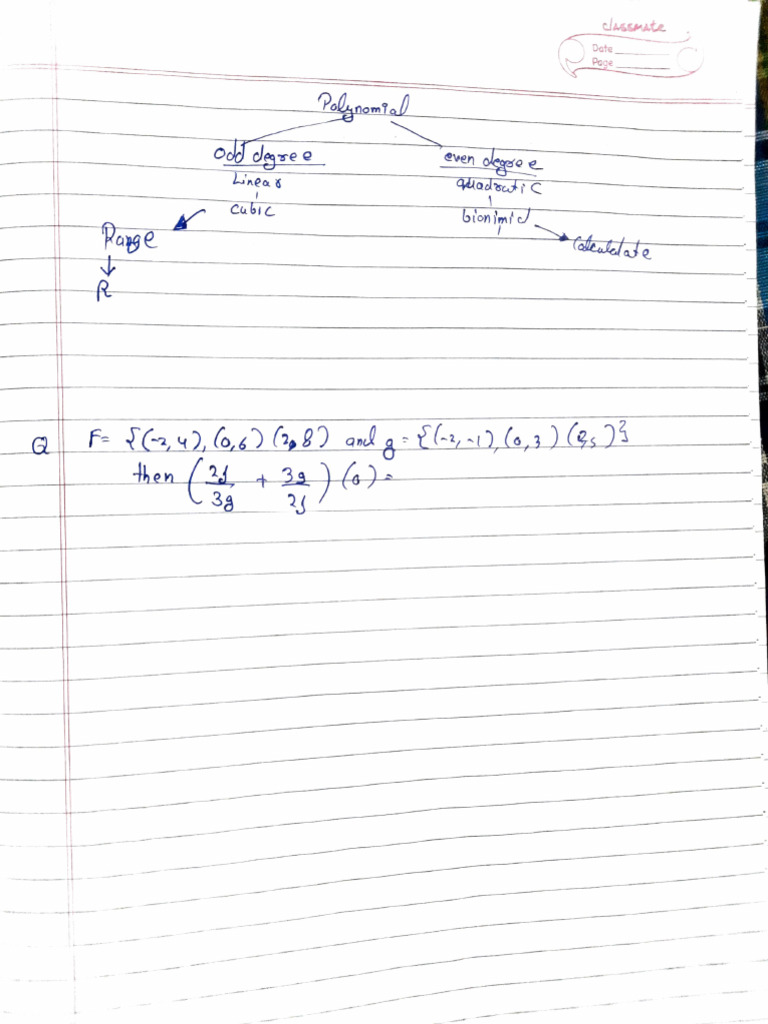 classmate
Date
Page
Polynomial
Odd degree even degree
Linear quadratic
cubic bionimid
Range Calculate
R
Q F= {(-2,4), (0,6) (2,8) and g = {(-2,-1), (0,3) (2,5)}
then (2f/3g + 3g/2f) (0) =